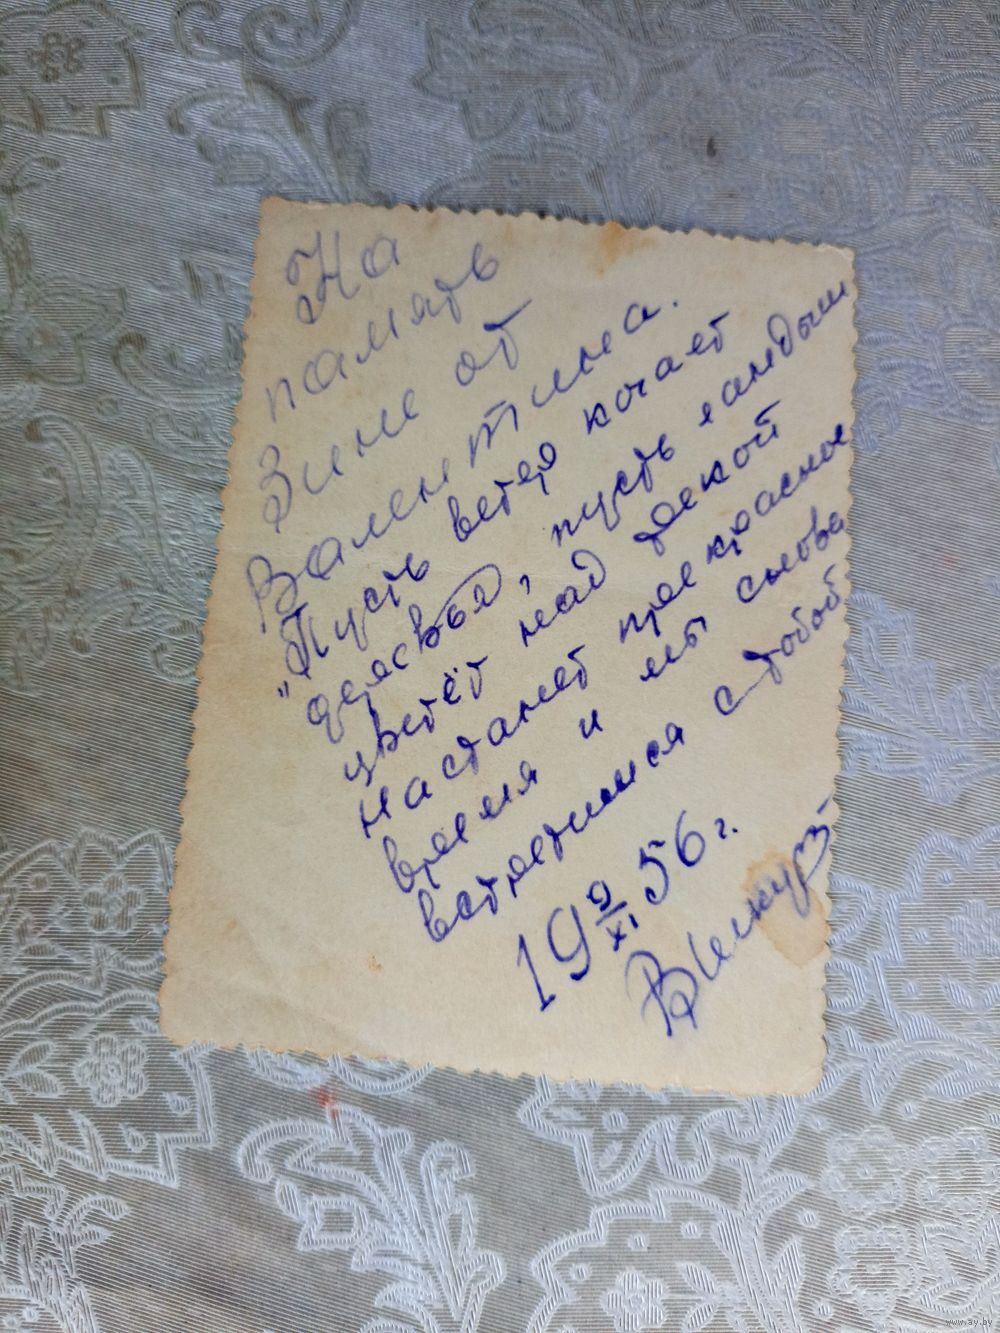 На
память
Зине от
Валентина.
"Пусть ветер качает
деревья, пусть ландыш
цветёт над рекой
настанет прекрасное
время и мы снова
встретимся с тобой
19 9/XI 56 г.
www.ay.by